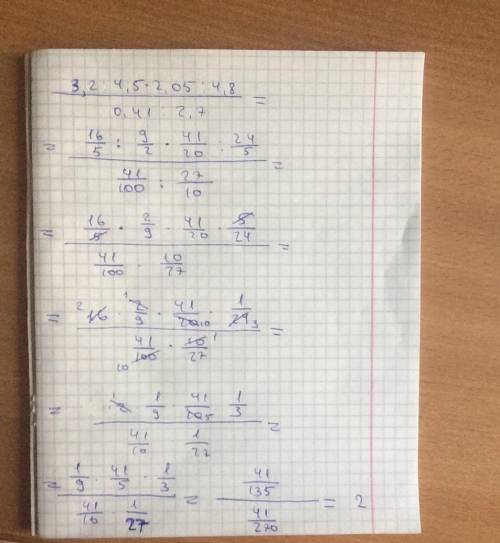 3,2 : 4,5 · 2,05 : 4,8
0,41 : 2,7 =
= 16/5 : 9/2 · 41/20 : 24/5
41/100 : 27/10 =
= 16/5 · 2/9 · 41/20 · 5/24
41/100 · 10/27 =
= 2 16 · 1 2/9 · 41/20 10 · 1/24 3
41/100 10 · 10 1/27 =
= 1 2 1/9 41/10 5 1/3
41/10 1/27 =
= 1/9 · 41/5 · 1/3 = 41/135 = 2
41/10 · 1/27 41/270